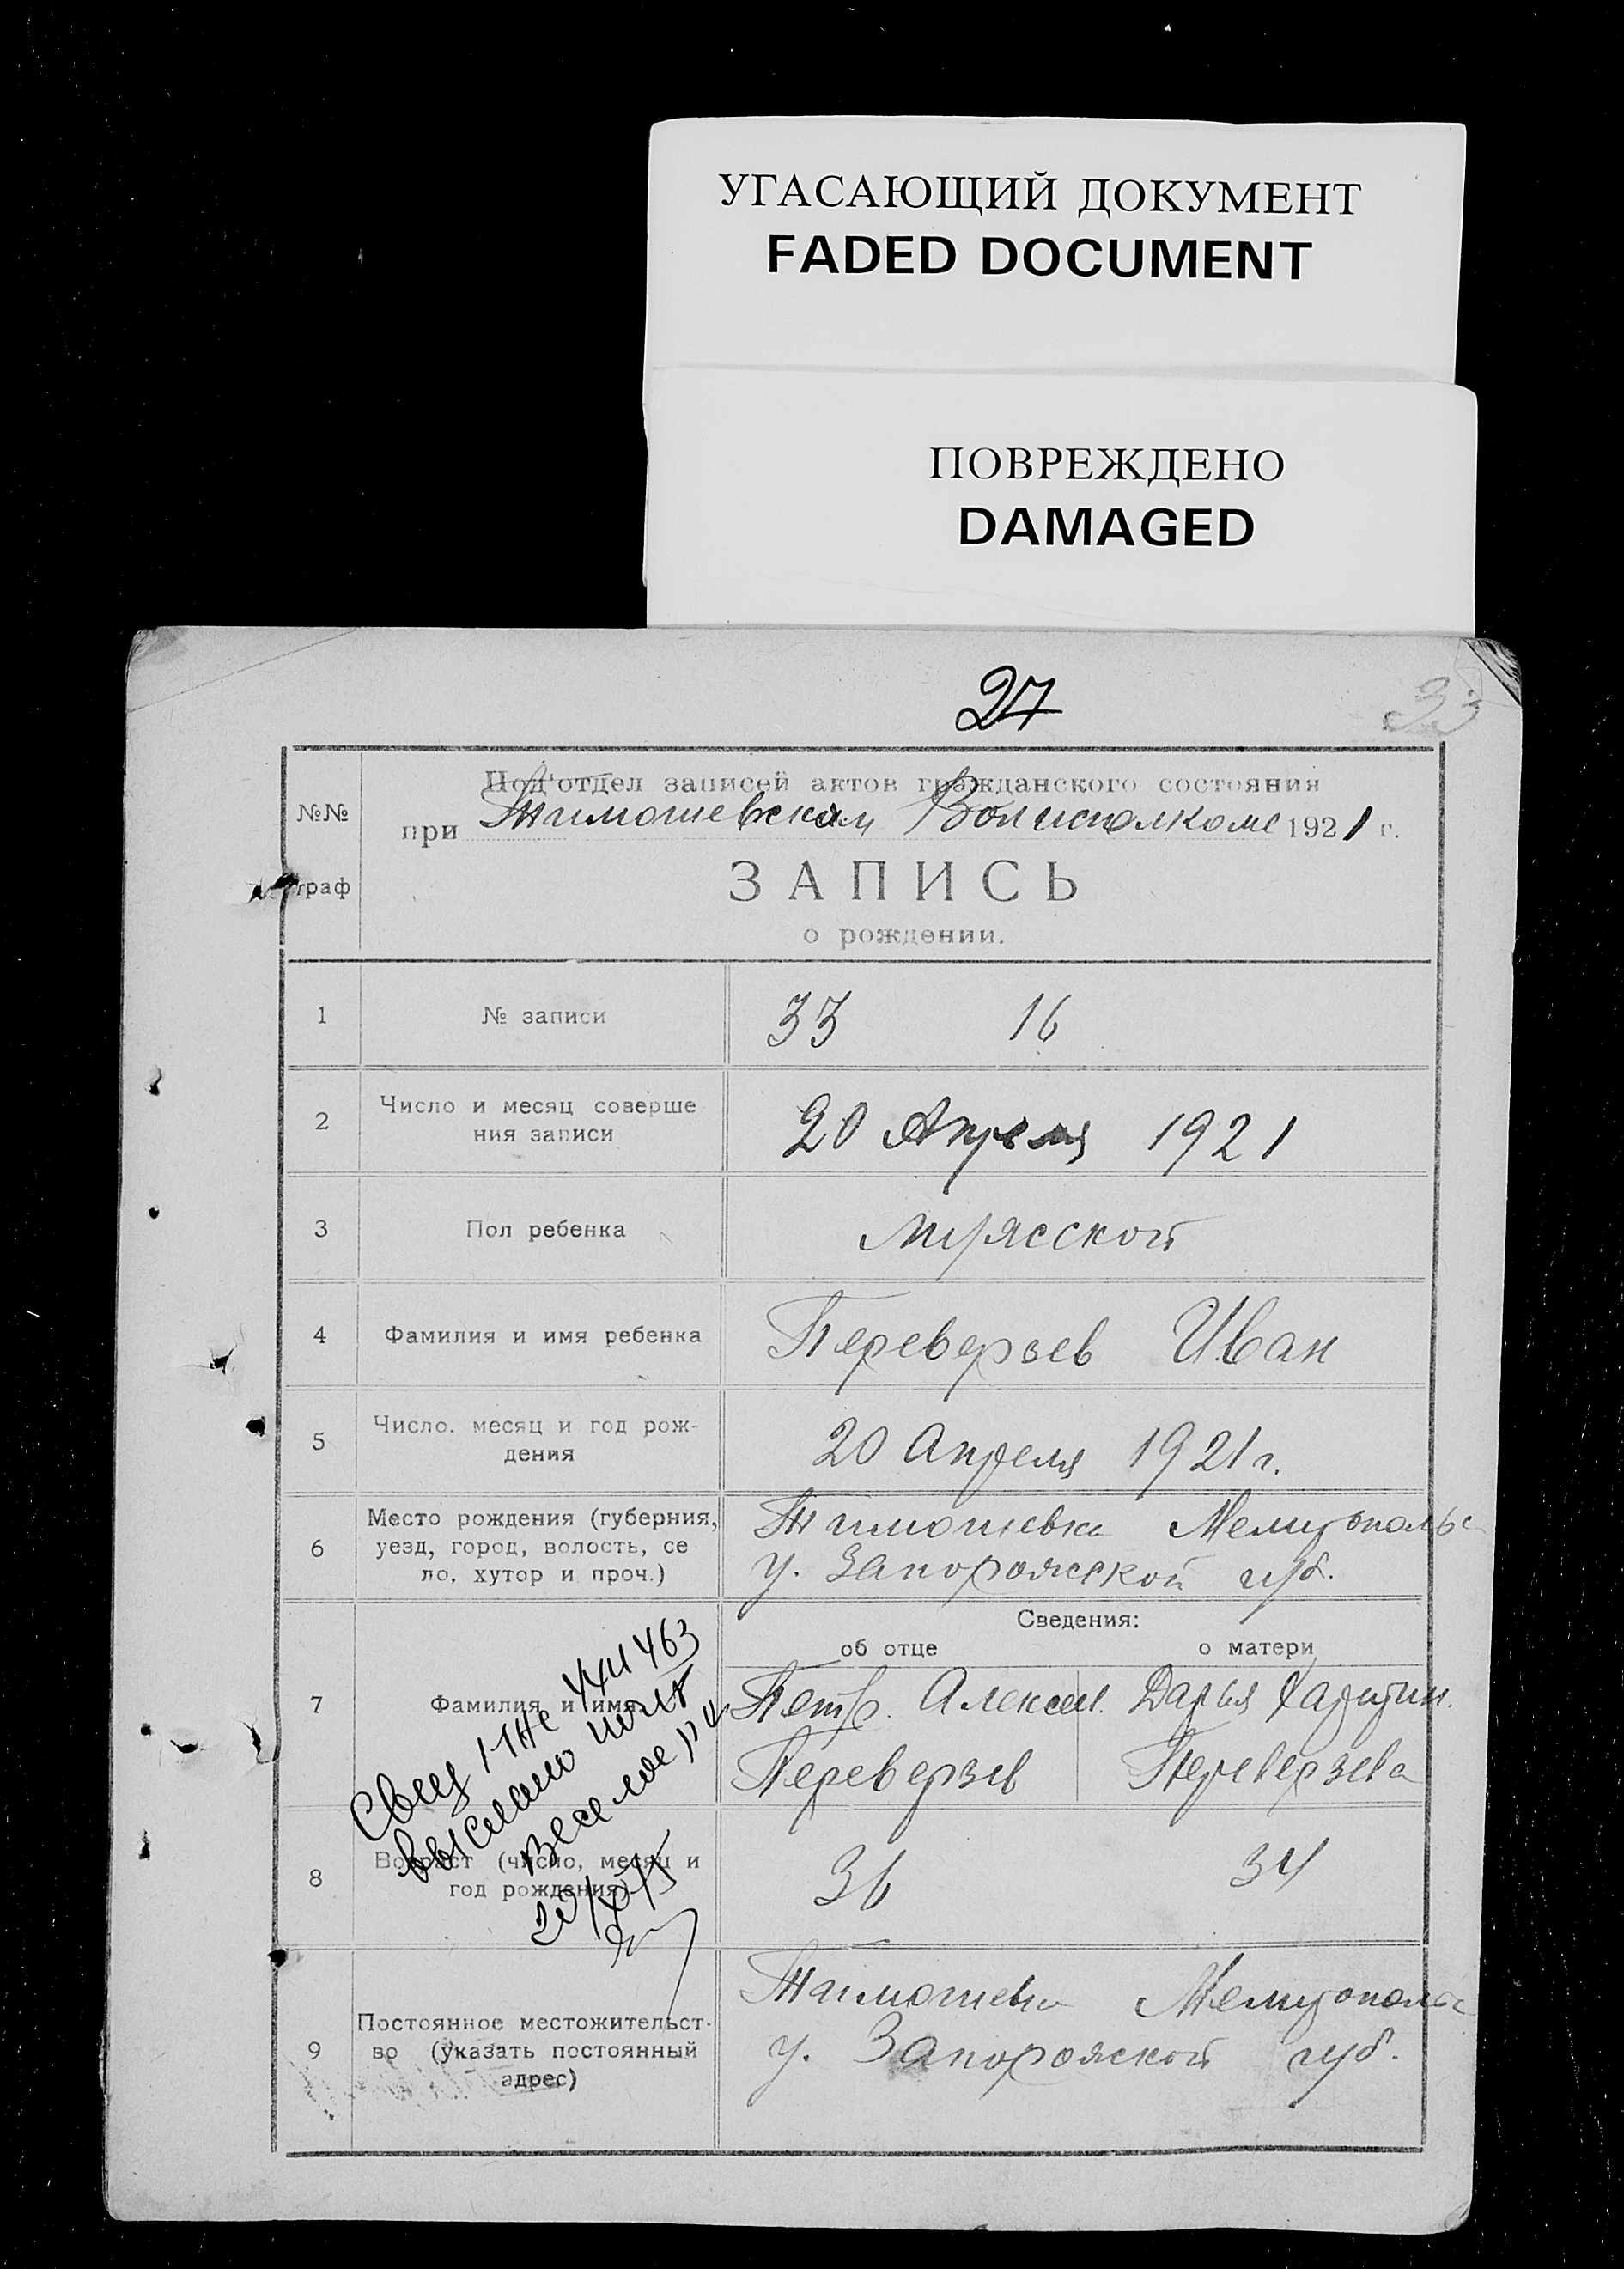 УГАСАЮЩИЙ ДОКУМЕНТ
FADED DOCUMENT
ПОВРЕЖДЕНО
DAMAGED
27
33
№№
граф
Под'отдел записей актов гражданского состояния
при Тимошевском Волисполкоме 1921 г.
ЗАПИСЬ
о рождении.
1 № записи 33 16
2 Число и месяц соверше
ния записи 20 Апреля 1921
3 Пол ребенка
4 Фамилия и имя ребенка Переверзев Иван
5 Число. месяц и год рож-
дения 20 Апреля 1921 г.
6 Место рождения (губерния,
уезд, город, волость, се
ло, хутор и проч.)
Тимошевка Мелитопольс
у. Запорожской губ.
Сведения:
об отце о матери
7 Фамилия и имя
Петр. Алексеи. Дарья Харитин.
Переверзев Переверзева
8 Возраст (число, месяц и
год рождения) 36 34
9 Постоянное местожительст-
во (указать постоянный
адрес)
Тимошевка Мелитопольс
у. Запорожской губ.
463
выслано
Веселое